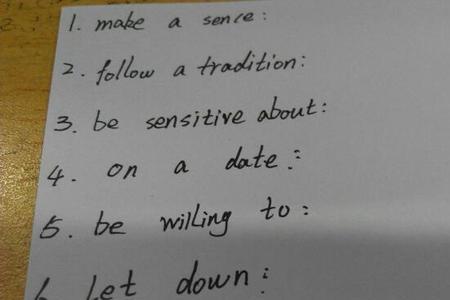 1. make a sence:
2. follow a tradition:
3. be sensitive about:
4. on a date:
5. be willing to:
6. Let down: